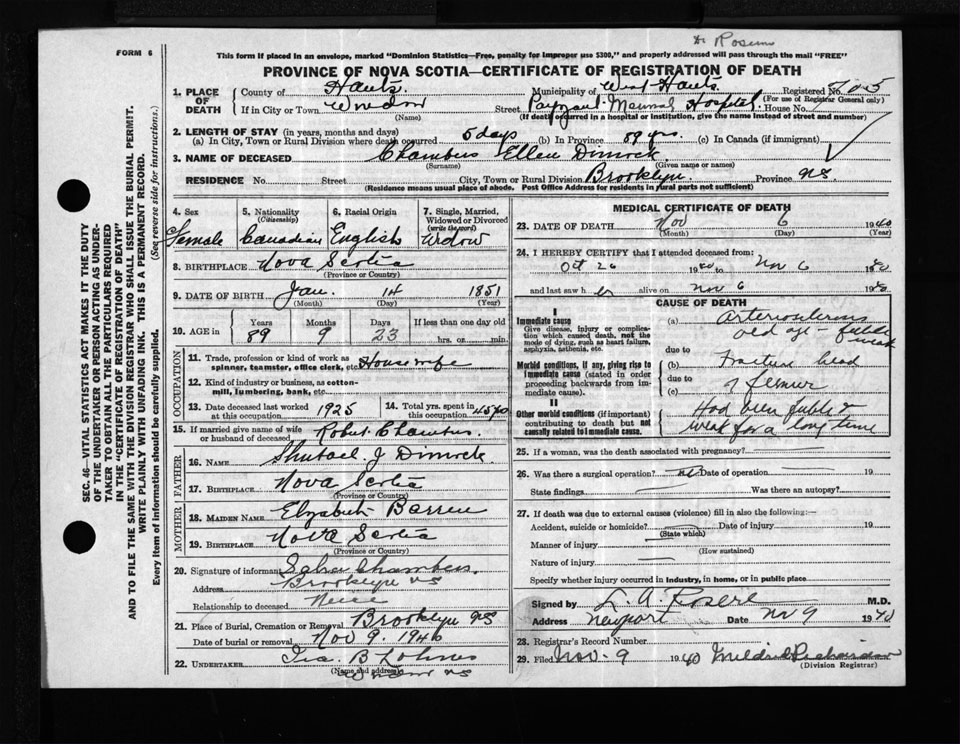 FORM 6
Dr Rosere
This form if placed in an envelope, marked "Dominion Statistics—Free, penalty for improper use $300," and properly addressed will pass through the mail "FREE"
PROVINCE OF NOVA SCOTIA—CERTIFICATE OF REGISTRATION OF DEATH
1. PLACE OF DEATH
County of Hants Municipality of West Hants Registered No.
(For use of Registrar General only)
If in City or Town Windsor Street Payzant Memorial Hospital House No.
(Name) (If death occurred in a hospital or institution, give the name instead of street and number)
2. LENGTH OF STAY (in years, months and days)
(a) In City, Town or Rural Division where death occurred 5 days (b) In Province 89 yrs. (c) In Canada (if immigrant)
3. NAME OF DECEASED Chambers Ellen Dimock
(Surname) (Given name or names)
RESIDENCE No. Street City, Town or Rural Division Brooklyn Province NS
(Residence means usual place of abode. Post Office Address for residents in rural parts not sufficient)
4. Sex Female
5. Nationality (Citizenship) Canadian
6. Racial Origin English
7. Single, Married, Widowed or Divorced (write the word) Widow
8. BIRTHPLACE Nova Scotia
(Province or Country)
9. DATE OF BIRTH Jan. 14 1851
(Month) (Day) (Year)
10. AGE in Years Months Days If less than one day old
89 9 23 hrs. or min.
OCCUPATION
11. Trade, profession or kind of work as spinner, teamster, office clerk, etc. Housewife
12. Kind of industry or business, as cotton-mill, lumbering, bank, etc.
13. Date deceased last worked at this occupation 1925
14. Total yrs. spent in this occupation
15. If married give name of wife or husband of deceased Robert Chambers
FATHER
16. NAME Shubael J Dimock
17. BIRTHPLACE Nova Scotia
(Province or Country)
MOTHER
18. MAIDEN NAME Elizabeth
19. BIRTHPLACE Nova Scotia
(Province or Country)
20. Signature of informant Chambers.
Address Brooklyn NS
Relationship to deceased Niece
21. Place of Burial, Cremation or Removal Brooklyn NS
Date of burial or removal Nov 9. 1940
22. UNDERTAKER Ira B Lohnes
(Name and address)
Windsor NS
MEDICAL CERTIFICATE OF DEATH
23. DATE OF DEATH Nov 6 1940
(Month) (Day) (Year)
24. I HEREBY CERTIFY that I attended deceased from:
Oct 26 1940 to Nov 6 1940
and last saw her alive on Nov 6 1940
CAUSE OF DEATH
I
Immediate cause
Give disease, injury or complication which caused death, not the mode of dying, such as heart failure, asphyxia, asthenia, etc.
(a) Arteriosclerosis
old age - feeble
weak
due to
Morbid conditions, if any, giving rise to immediate cause (stated in order proceeding backwards from immediate cause).
(b) Fracture head
due to
(c) of femur
II
Other morbid conditions (if important) contributing to death but not causally related to immediate cause.
Had been feeble &
weak for a long time
25. If a woman, was the death associated with pregnancy?
26. Was there a surgical operation? no Date of operation 19
State findings Was there an autopsy?
27. If death was due to external causes (violence) fill in also the following:—
Accident, suicide or homicide? Date of injury 19
(State which)
Manner of injury
(How sustained)
Nature of injury
Specify whether injury occurred in industry, in home, or in public place
Signed by L. A. Rosere M.D.
Address Newport Date Nov 9 1940
28. Registrar's Record Number
29. Filed Nov. 9 1940 Mildred Richardson
(Division Registrar)
SEC. 46—VITAL STATISTICS ACT MAKES IT THE DUTY
OF THE UNDERTAKER OR PERSON ACTING AS UNDER-
TAKER TO OBTAIN ALL THE PARTICULARS REQUIRED
IN THE "CERTIFICATE OF REGISTRATION OF DEATH"
AND TO FILE THE SAME WITH THE DIVISION REGISTRAR WHO SHALL ISSUE THE BURIAL PERMIT.
WRITE PLAINLY WITH UNFADING INK. THIS IS A PERMANENT RECORD.
Every item of information should be carefully supplied. (See reverse side for instructions.)